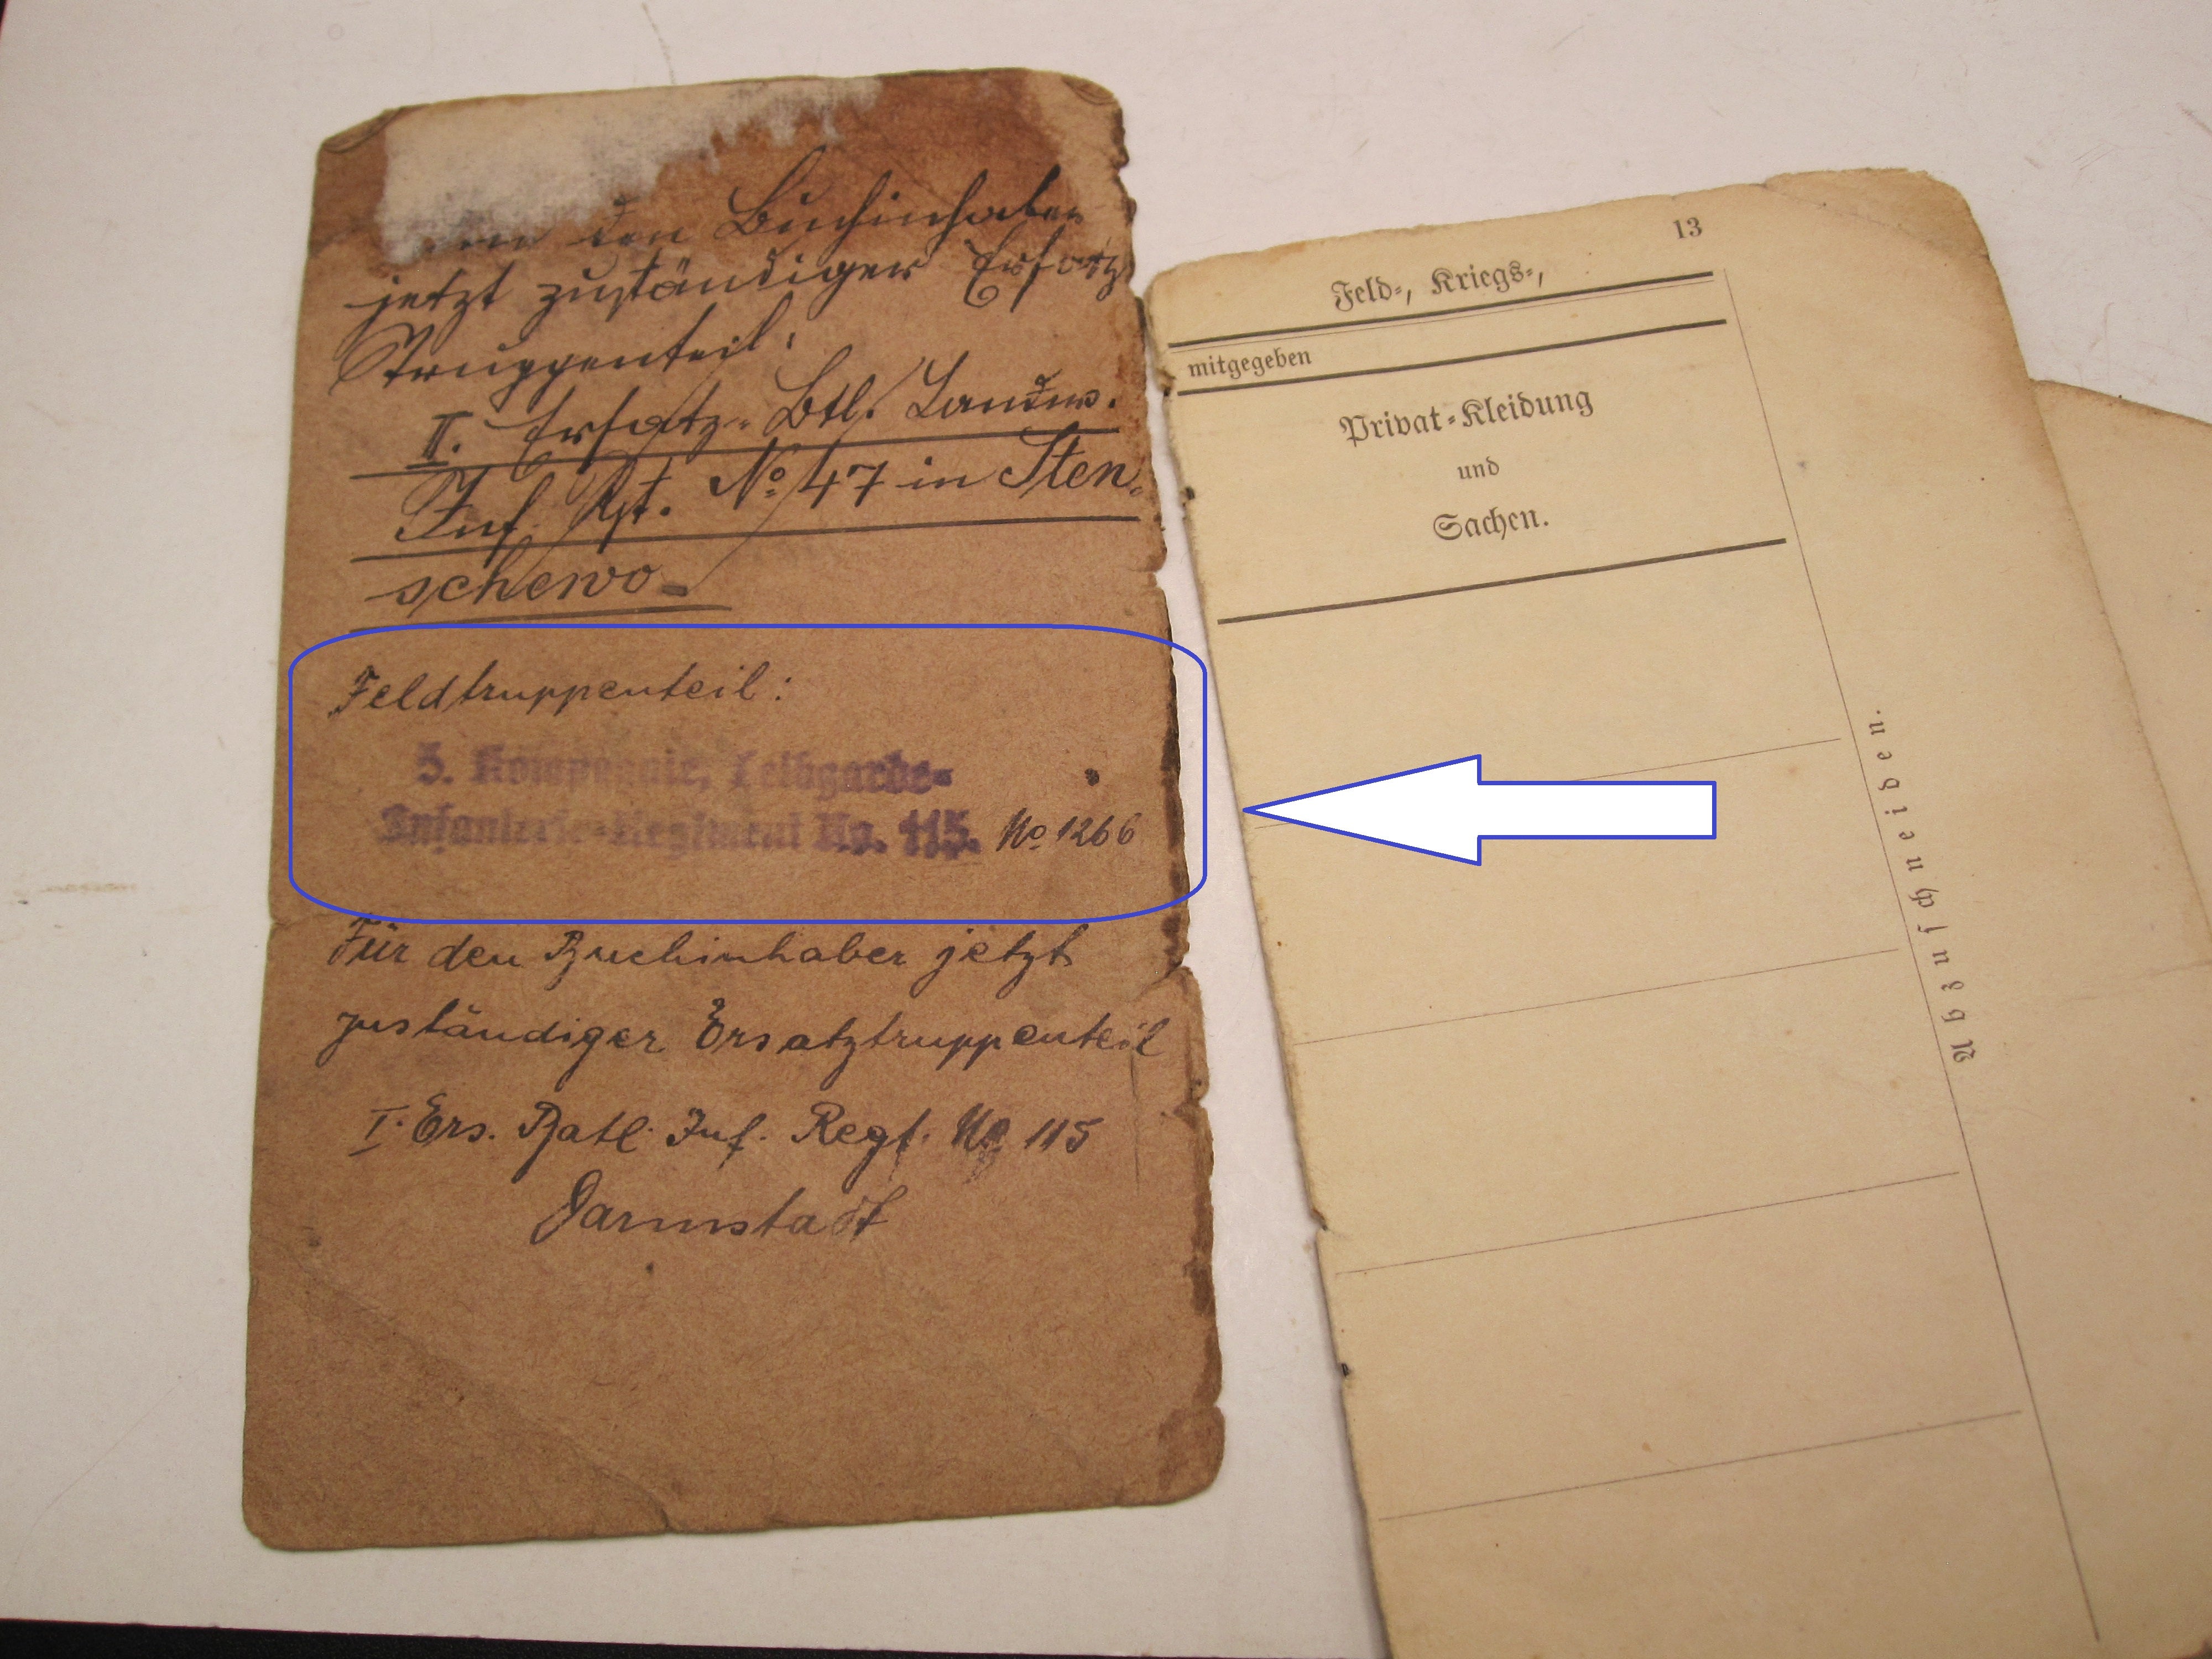 den Buchinhaber
jetzt zuständiger Ersatz
Truppenteil:
II. Ersatz-Btl. Landw.
Inf. Rgt. No. 47 in Sten-
schewo-
Feldtruppenteil:
Kompagnie, Leibgarde-
Infanterie-Regiment No. 115. No 1266
Für den Buchinhaber jetzt
zuständiger Ersatztruppenteil
I. Ers. Batl. Inf. Regt. No 115
Darmstadt
13
Feld-, Kriegs-,
mitgegeben
Privat-Kleidung
und
Sachen.
Abzuschneiden.